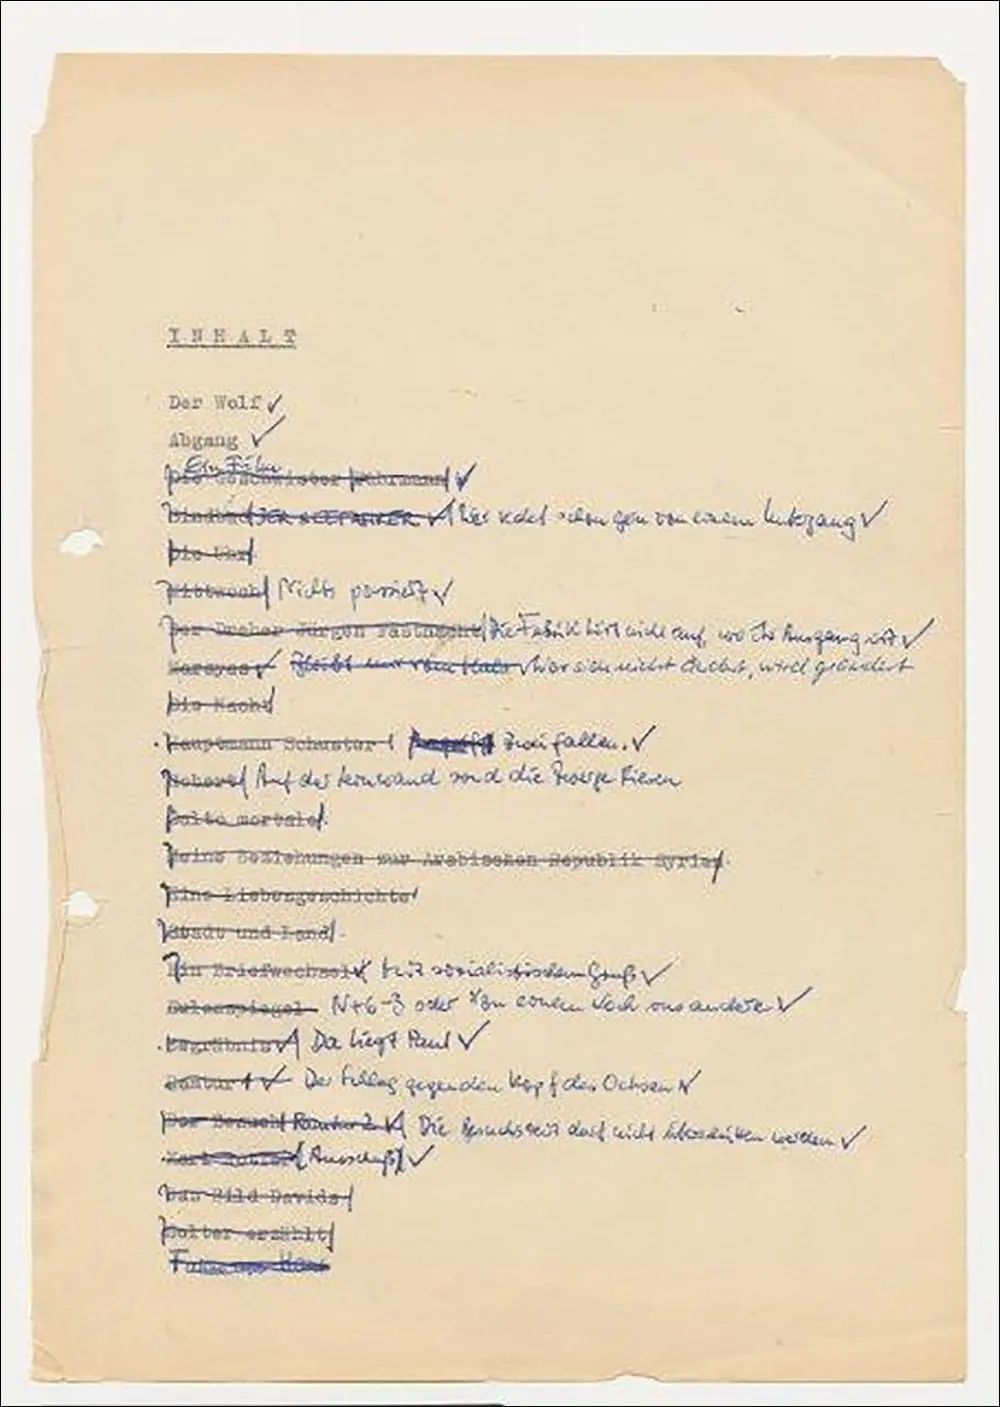 INHALT
Der Wolf ✓
Abgang ✓
Ein Film
Die Geschwister ✓
Sindbad DER SEEFAHRER ✓ Hier redet schon gen von einem Untergang ✓
Die Uhr
Mittwoch Nichts passiert ✓
Der Dreher Jürgen Fastnacht Die Fabrik hört nicht auf, wo Ausgang ist ✓
Marsyas ✓ Bleibt nur vom ✓ Wer sich nicht duckt, wird geändert
Die Nacht
Hauptmann Schuster Zwei fallen. ✓
Auf der Leinwand sind die Zwerge Riesen
Salto mortale
Meine Beziehungen zur Arabischen Republik Syrien
Eine Liebesgeschichte
Stadt und Land
Ein Briefwechsel ✓ Mit sozialistischem Gruß ✓
Eulenspiegel N+6-3 oder Von einem Loch ins andere ✓
Begräbnis ✓ Da liegt Paul ✓
✓ Der Schlag gegen den Kopf des Ochsen ✓
Der Besuch 2 ✓ Die Besuchszeit darf nicht überschritten werden ✓
Karl ✓
Das Bild Davids
Solter erzählt